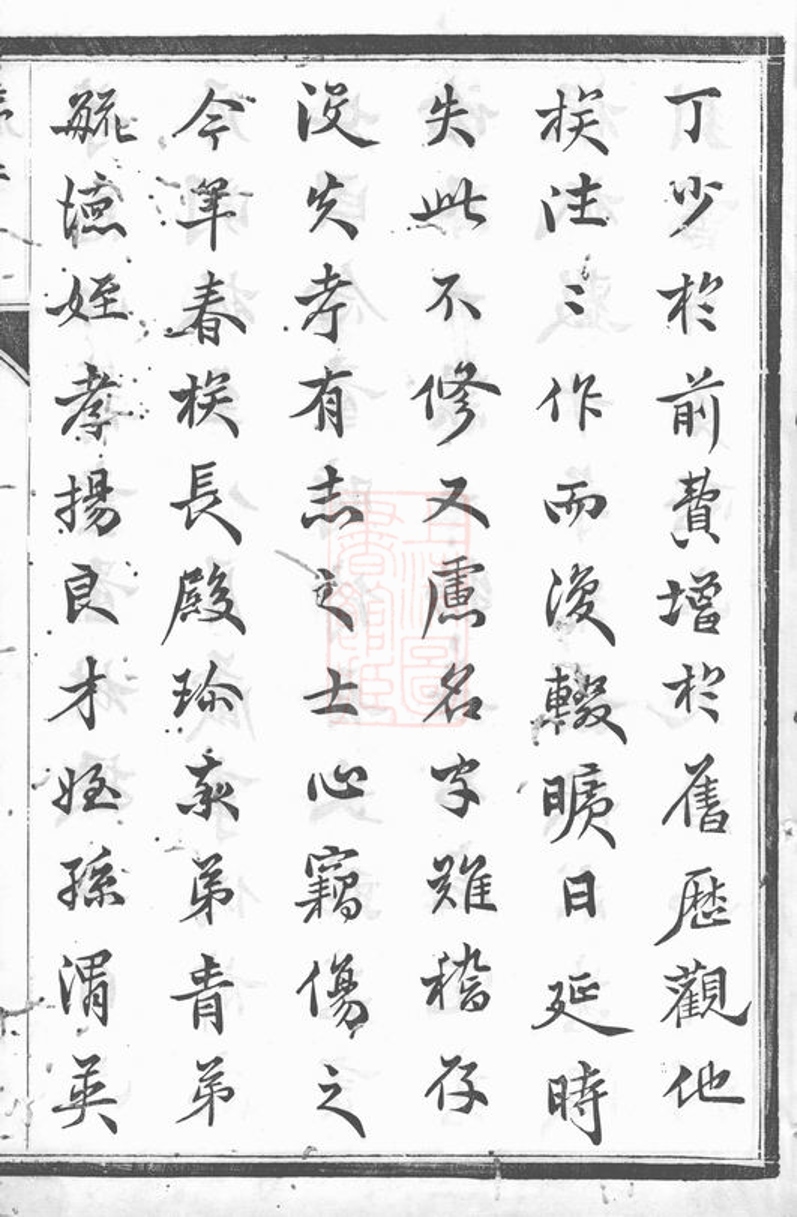 丁少於前費增於舊歷觀他
族往〻作而復輟曠日延時
失此不修又慮名字難稽存
没失考有志之士心竊傷之
今年春族長殿珍泰弟青弟
毓德姪孝揚良才姪孫渭英